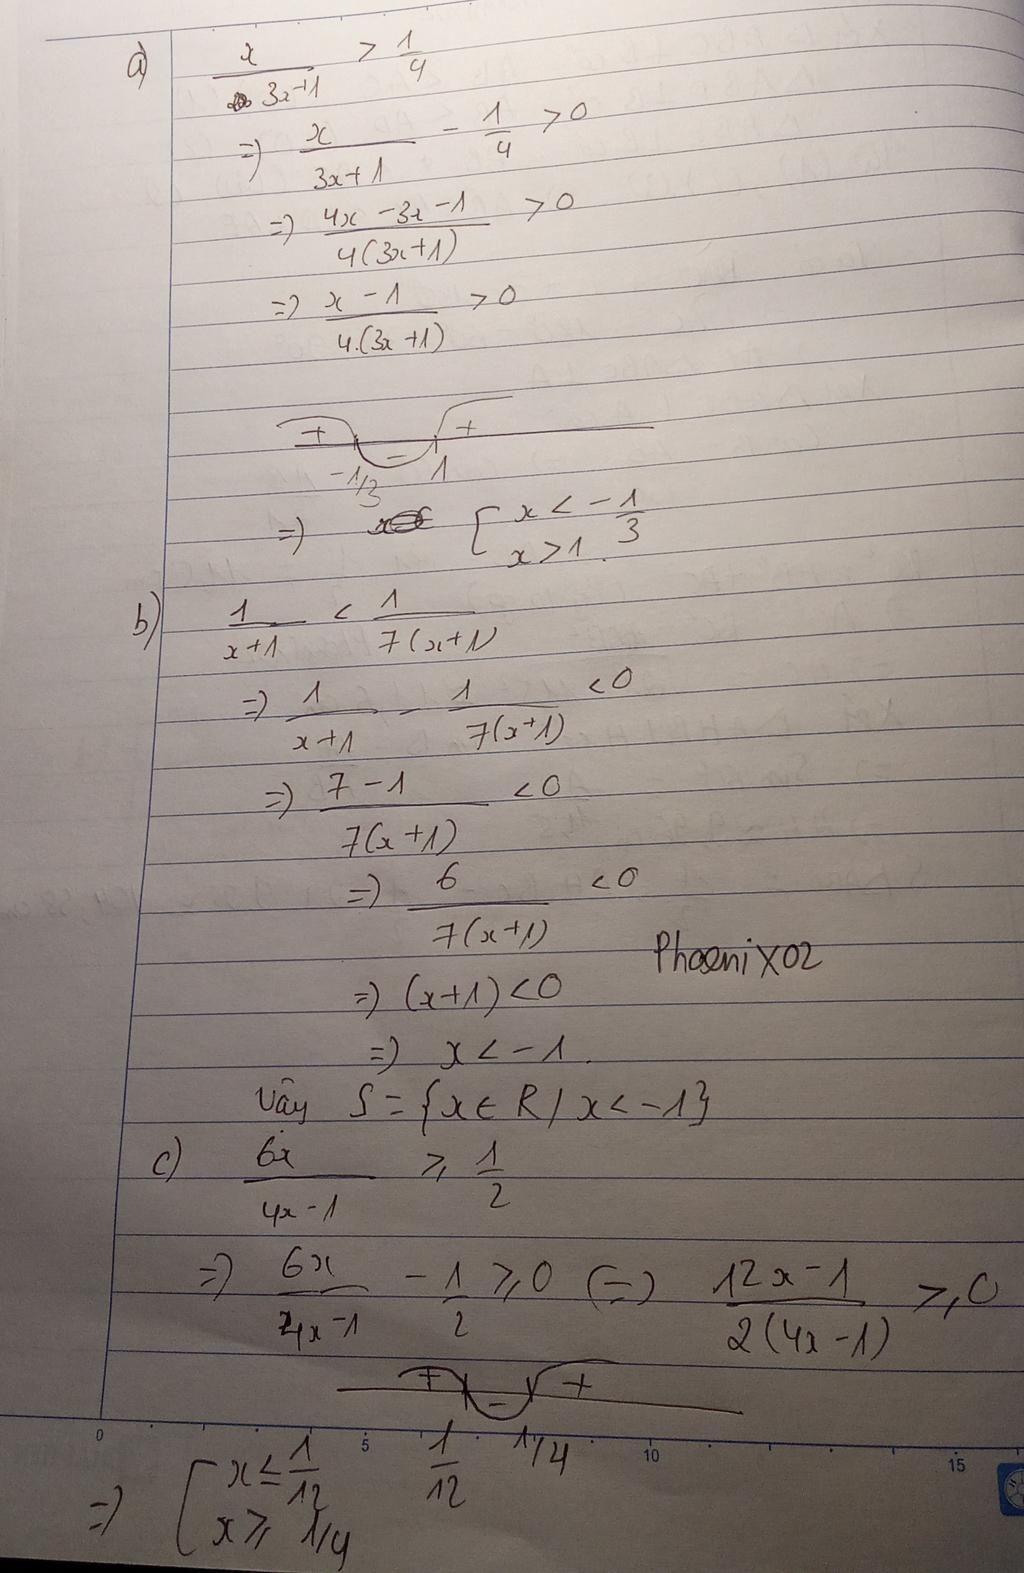 a) x/(3x+1) > 1/4
=) x/(3x+1) - 1/4 > 0
=) (4x - 3x - 1)/(4(3x+1)) > 0
=) (x - 1)/(4.(3x+1)) > 0
+ - +
-1/3 1
=) [ x < -1/3
x > 1.
b) 1/(x+1) < 1/(7(x+1))
=) 1/(x+1) - 1/(7(x+1)) < 0
=) (7 - 1)/(7(x+1)) < 0
=) 6/(7(x+1)) < 0
PhoeniX02
=) (x+1) < 0
=) x < -1.
Vây S = {x ∈ R / x < -1}
c) 6x/(4x-1) ≥ 1/2
=) 6x/(4x-1) - 1/2 ≥ 0 (=) (12x-1)/(2(4x-1)) ≥ 0
+ - +
1/12 1/4
0 5 10 15
=) [ x ≤ 1/12
x ≥ 1/4